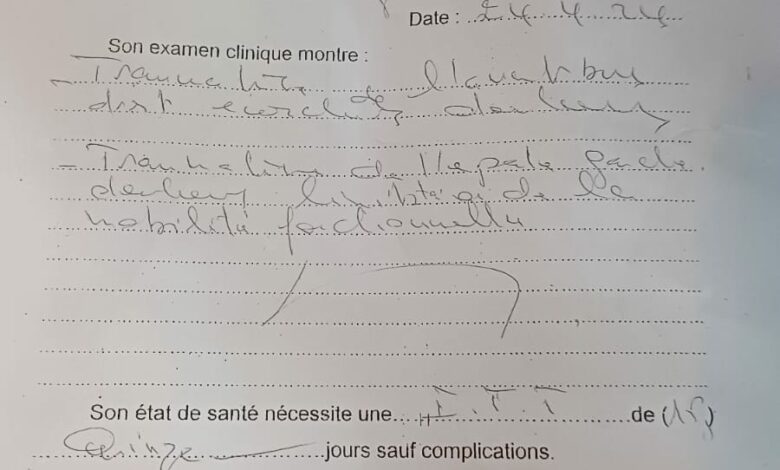 Date : 24.4.24
Son examen clinique montre :
- Traumatisme de l'avant bras
droit douleur
- Traumatisme de l'épaule gache
douleur limitation de la
mobilité fonctionnelle
Son état de santé nécessite une I.T.T de (15)
Quinze jours sauf complications.